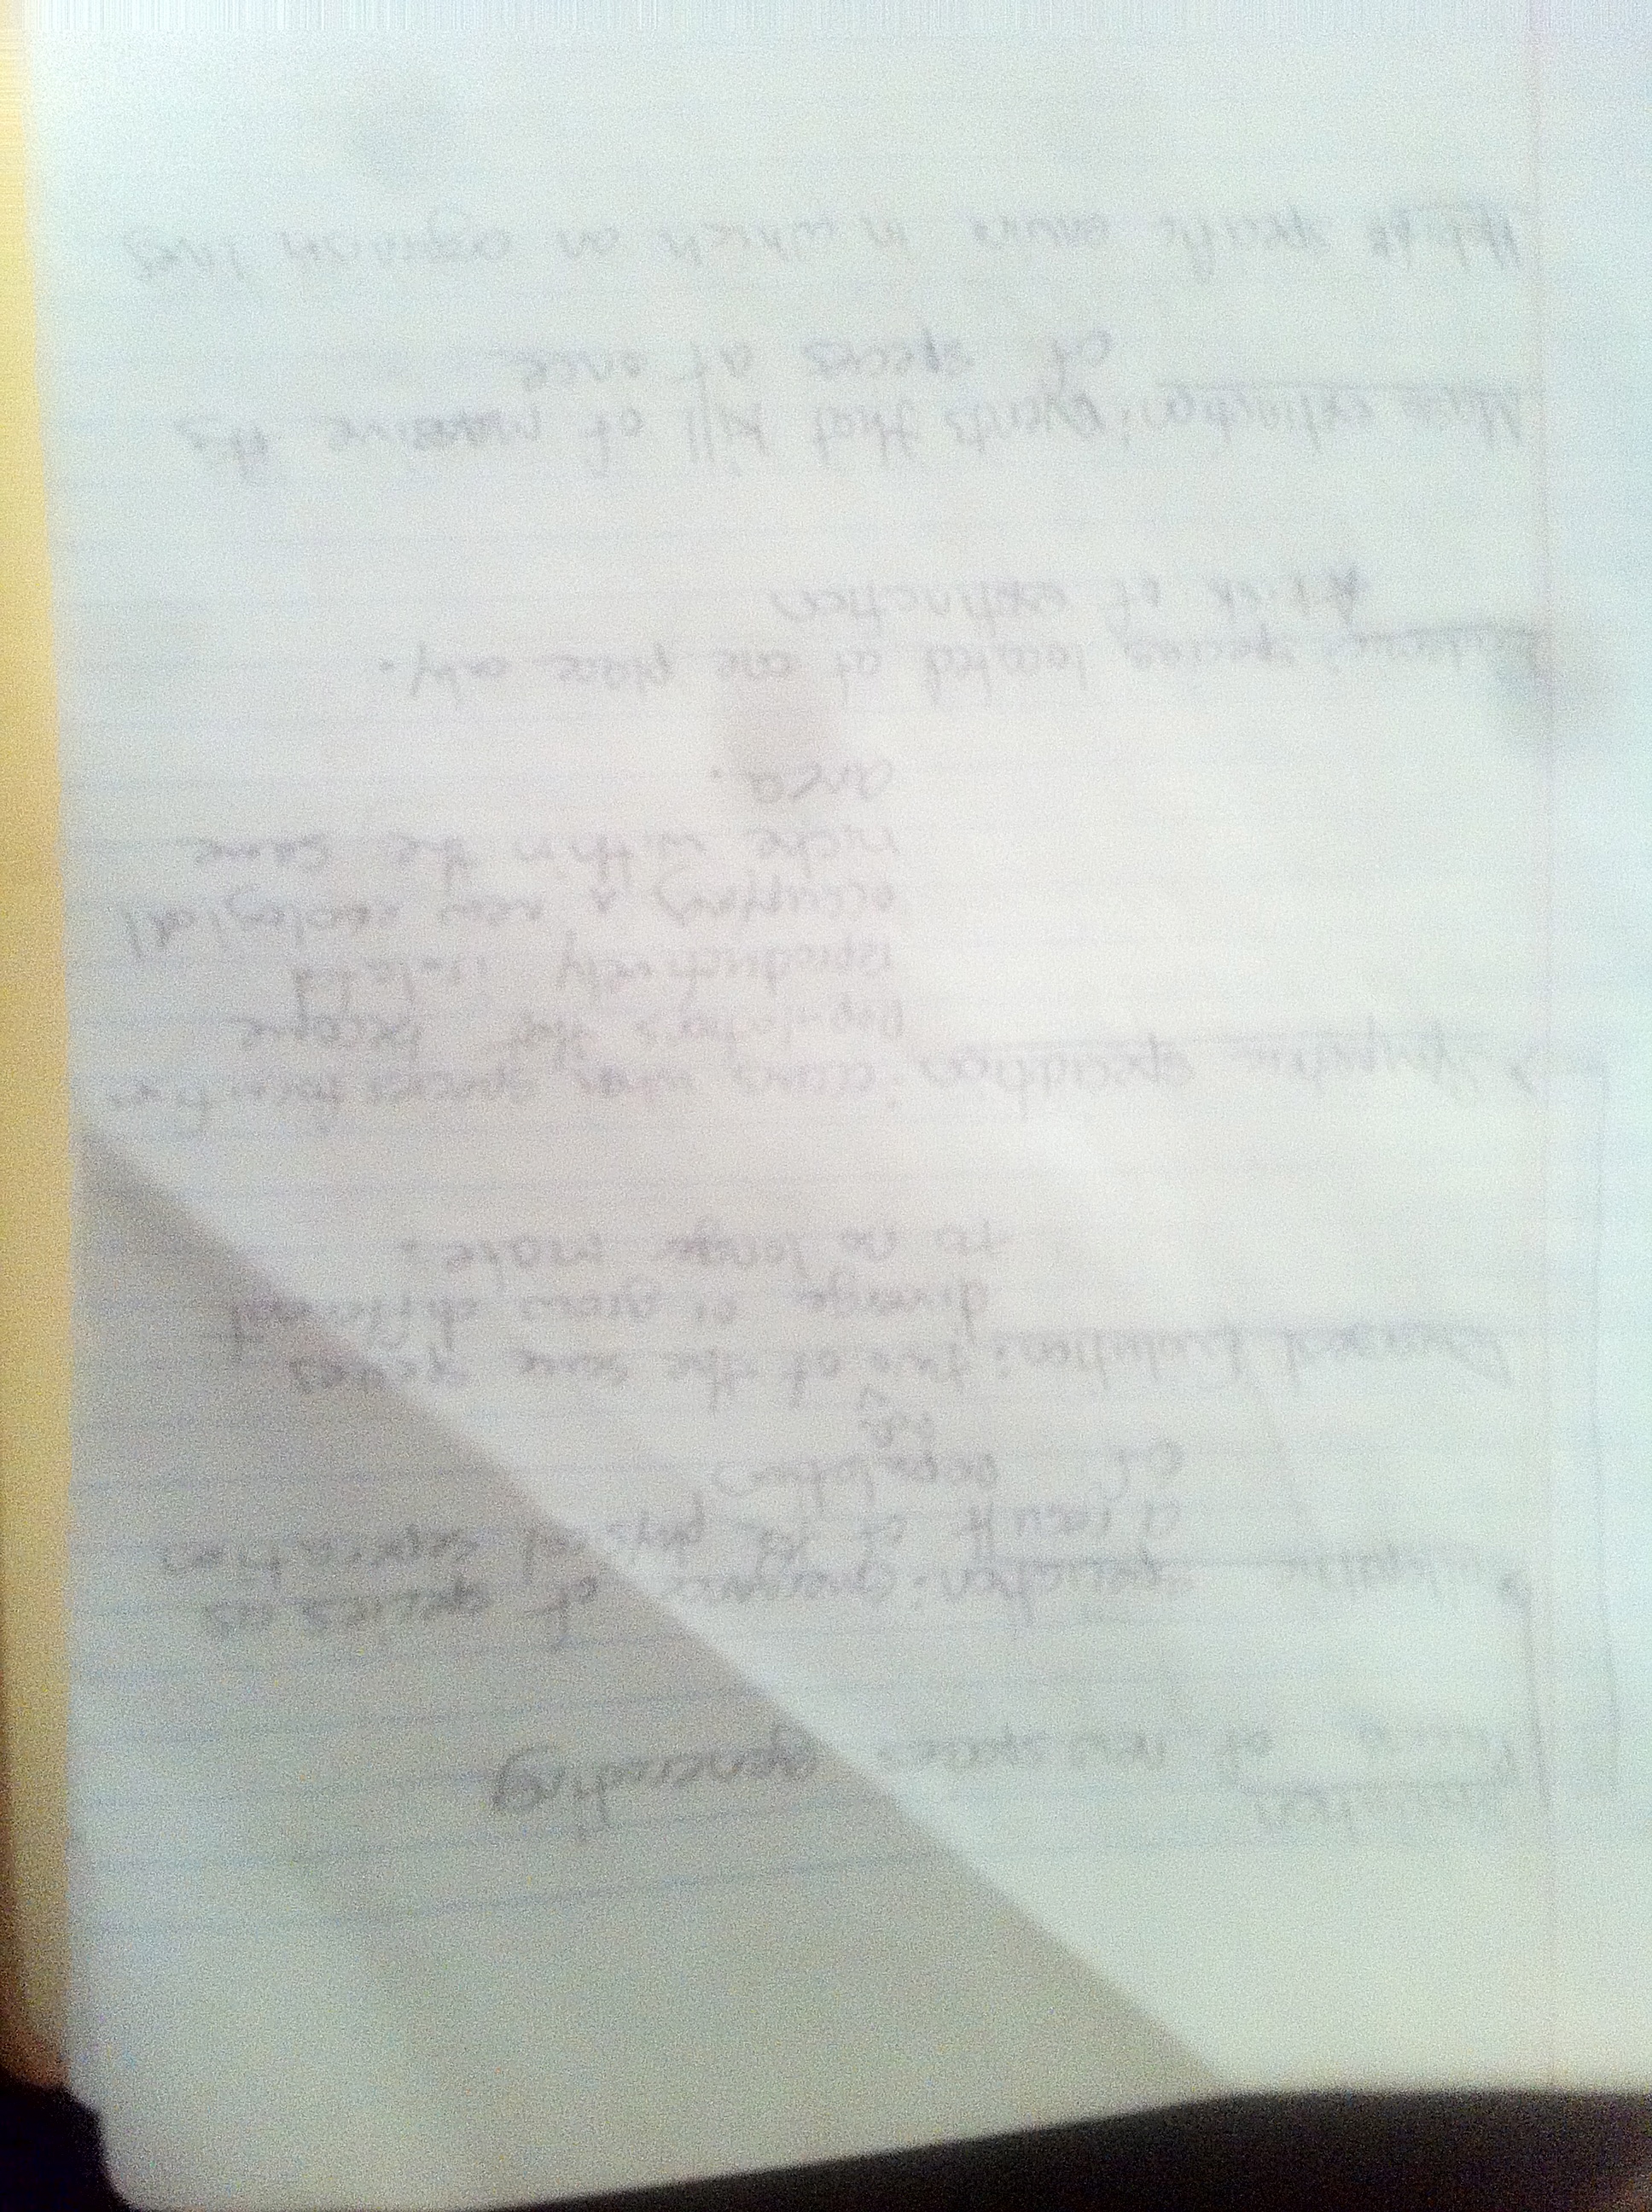 Speciation
of new species generating
speciation: divergence of species as
a result of physical separation
of population
Divergent Evolution: two of the same species
diverge or grow different
to no longer mate.
Sympatric speciation: occurs when species form from
populations that become
reproductively isolated
occupying a new ecological
niche within the same
area.
species located at one place only.
risk of extinction
Mass extinction: events that kill of massive #s
of species at once
specific in which an organism lives